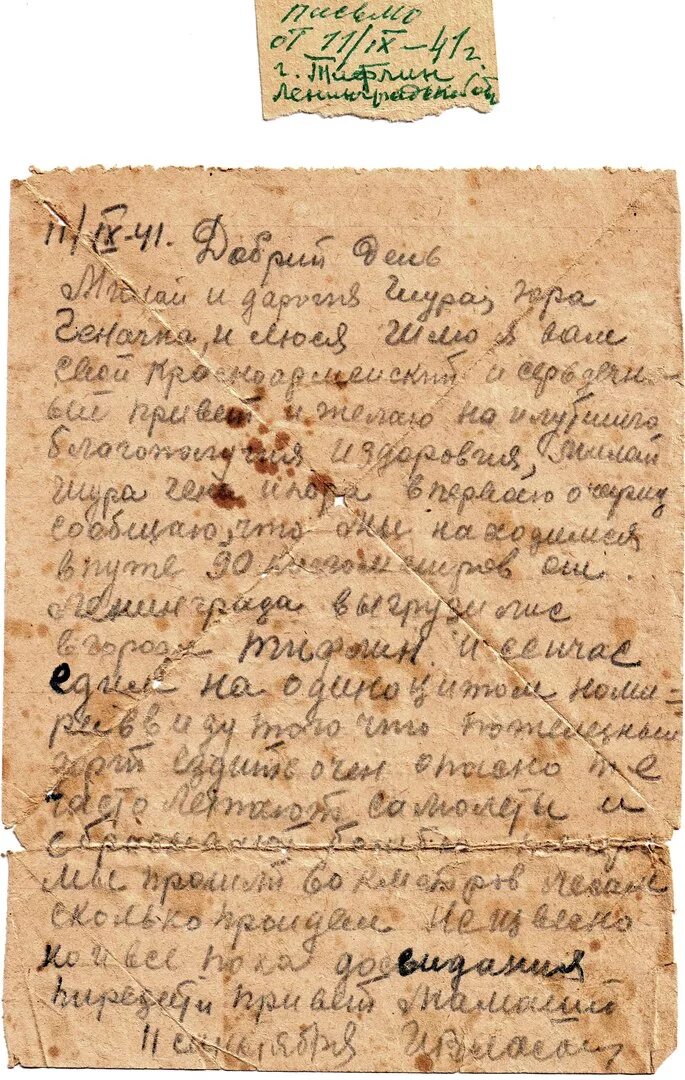 письмо
от 11/IX-41г.
г. Тифлин
Ленинградской
11/IX-41. Добрий день
Милаи и дарогия Шура, юра
Геначка, и Люся Шлю я вам
свой Красноармейский и серьдечн-
ый привет и желаю наилубшиго
благополучия издаровия, Милаи
Шура гена июра впервою
сообщаю, что мы находимся
впуте 90 километров от.
Ленинграда выгрузилис
вгороде тифлин. и сеичас
едим на
ввиду таго что пожелезный
ездить очен опасно
часто летают самолеты и
мы прошли
сколько проидем Неизвесно
но и все пока досвидания
привет
11 сентября